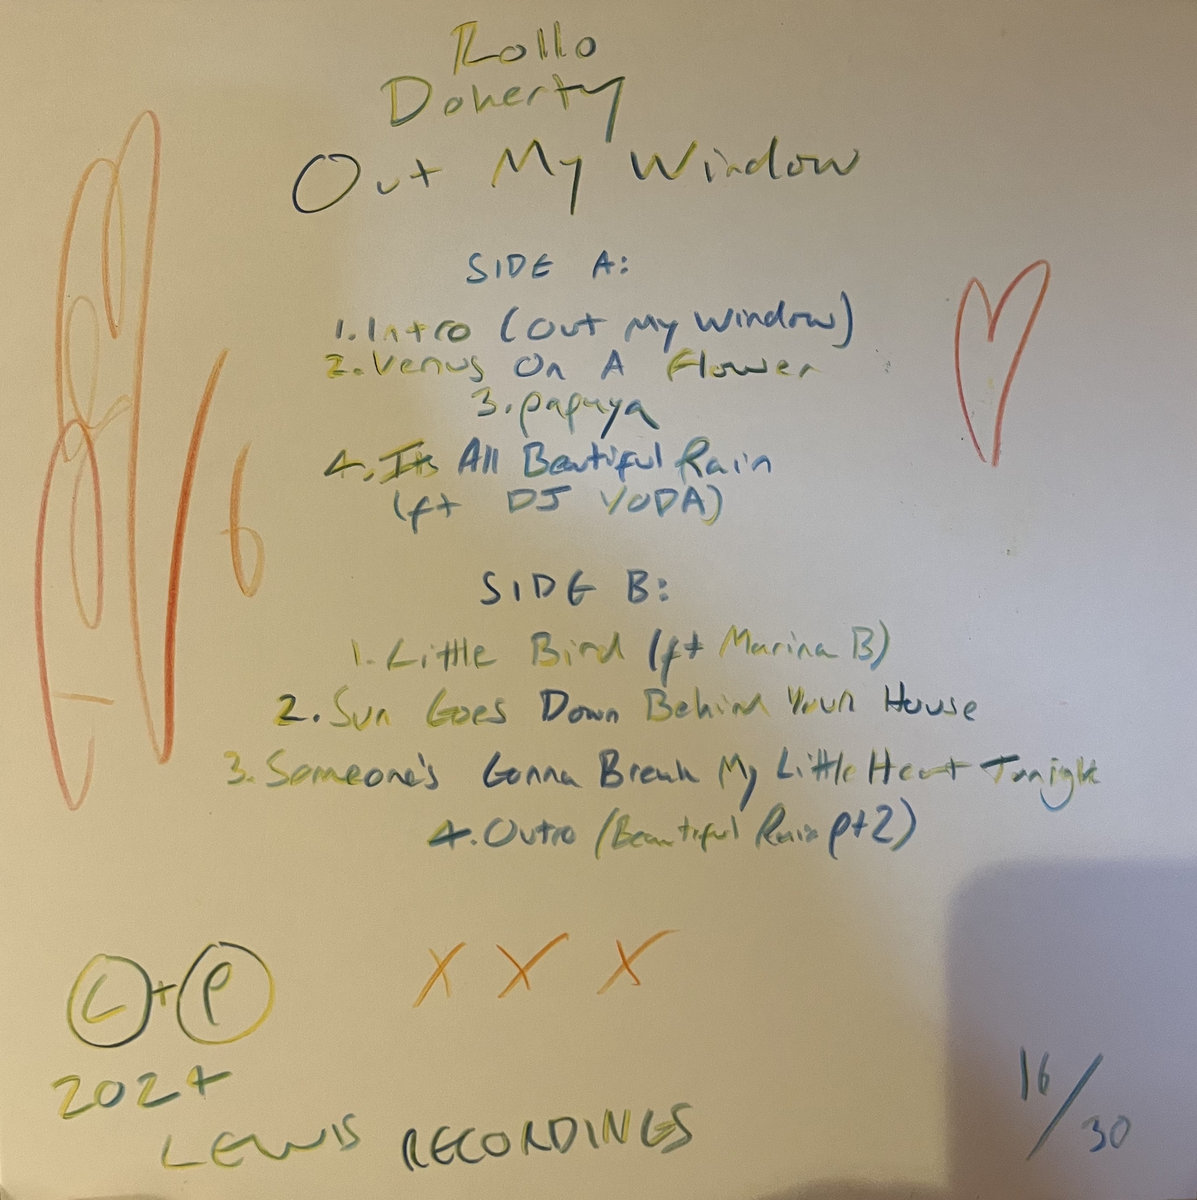 Rollo
Doherty
Out My Window
SIDE A:
1. Intro (Out My Window)
2. Venus On A Flower
3. Papaya
4. Its All Beautiful Rain
(ft DJ YODA)
SIDE B:
1. Little Bird (ft Marina B)
2. Sun Goes Down Behind Your House
3. Someone's Gonna Break My Little Heart Tonight
4. Outro (Beautiful Rain pt2)
X X X
C + P
2024
LEWIS RECORDINGS
16/30